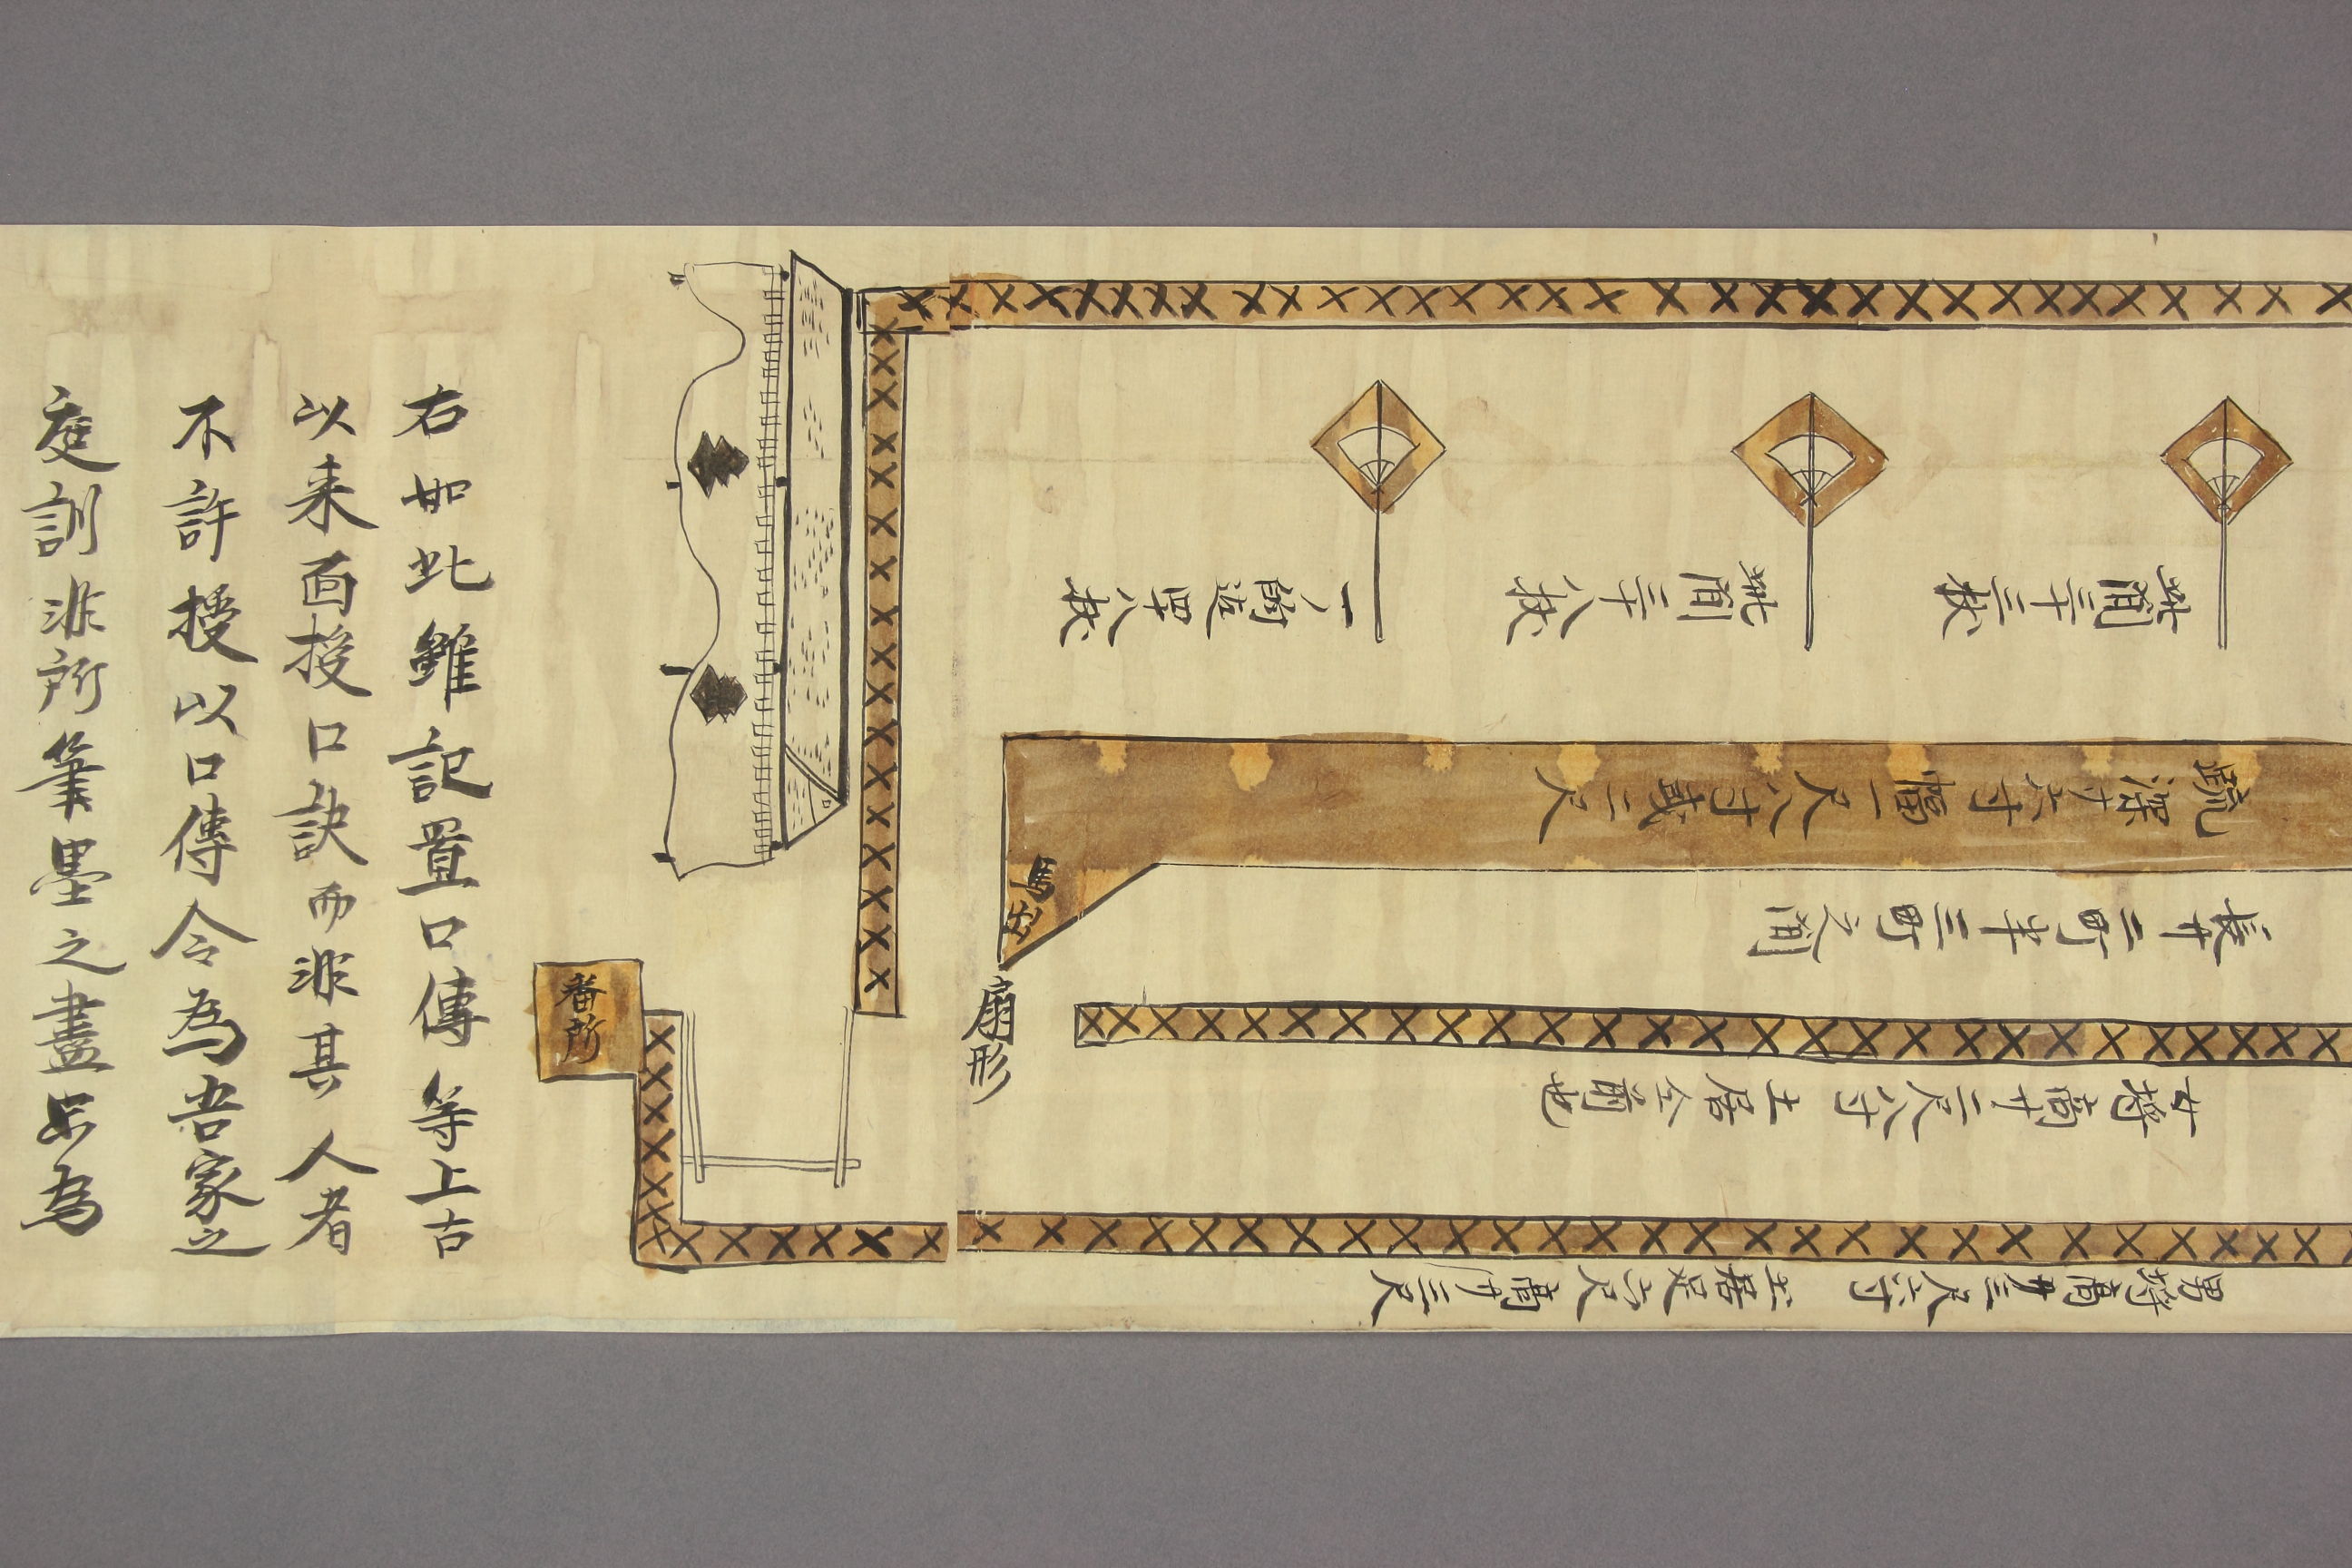 此間三十三杖
此間三十八杖
一ノ的迄四十八杖
疏深サ六寸幅一尺八寸或二尺
長サ二町半三町之間
女埒高サ二尺八寸 土居仝前也
男埒高サ三尺六寸 土居六尺高サ三尺
馬出
扇形
番所
右如此雖記置口傳等上古
以来面授口訣而非其人者
不許授以口傳令為吾家之
庭訓非所筆墨之盡只為